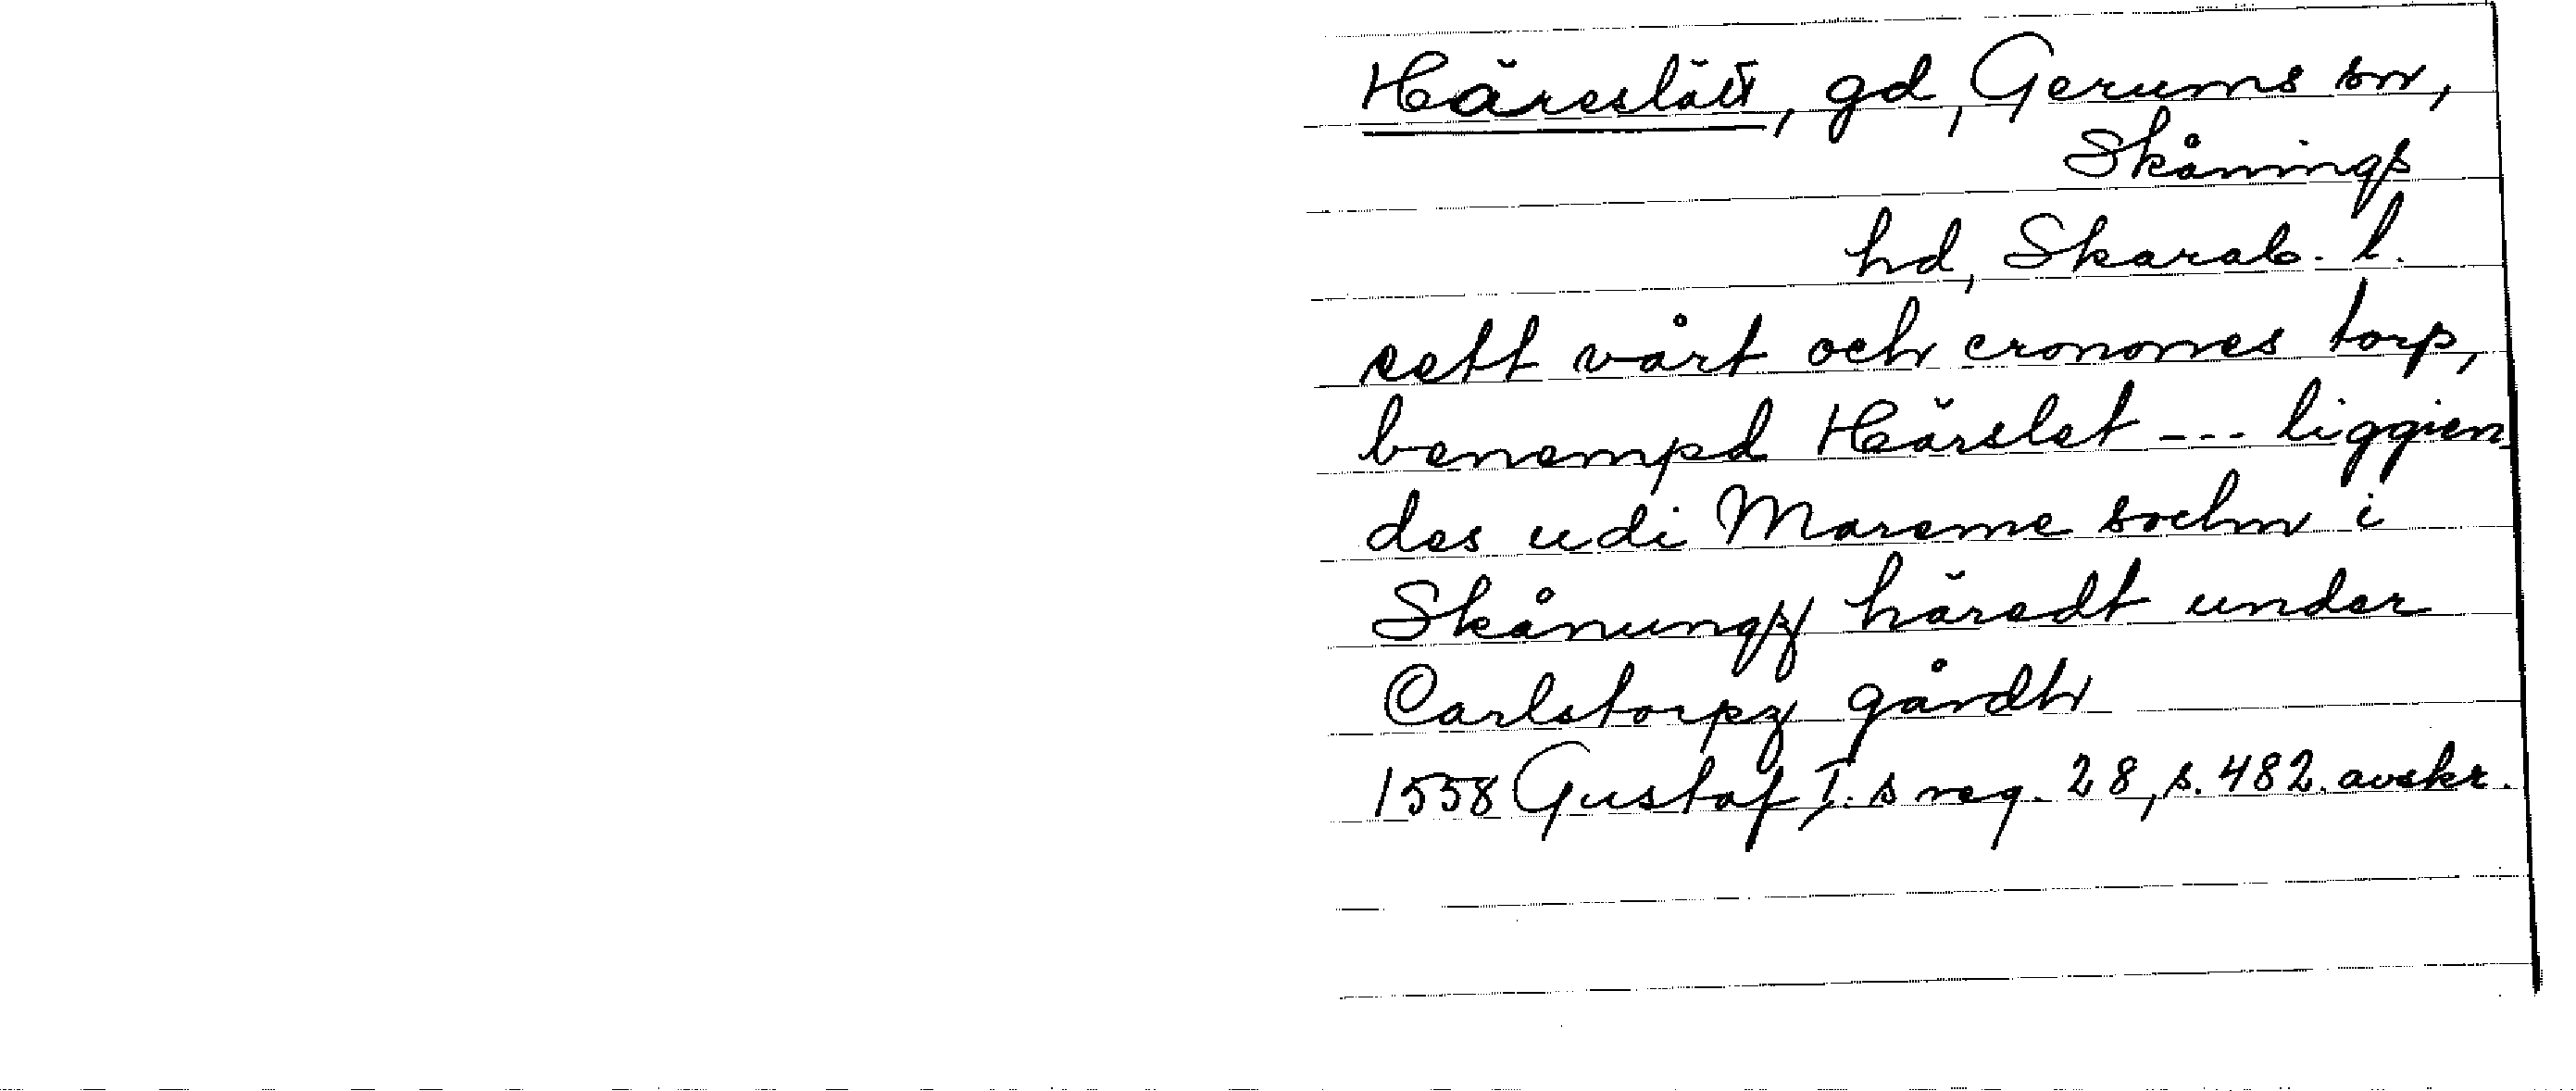 Häreslätt, gd, Gerums sn,
Skånings
hd, Skarab. l.
eett vårt och cronones torp,
benempd Härslet --- liggien
des udi Mareme sochn i
Skånungz häredt under
Carlstorpz gårdh
1558 Gustaf I.s reg. 28, s. 482. avskr.